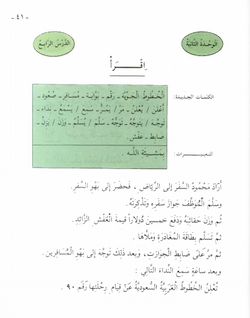 - ٤١ -
الوحدة الثانية
الدرس الرابع
اقرأ
الكلمات الجديدة:
الخطوط الجوية - رقم - بوابة - مسافر - صعود -
أعلن / يُعلن - مرّ / يمرّ - سمع / يسمع - نداء -
توجّه / يتوجّه - توجُّه - سلّم / يسلّم - وزن / يزن -
ضابط - عفش
التعبيرات:
بمشيئة الله
أراد محمود السفر إلى الرياض، فحضر إلى بهو السفر.
وسلّم الموظف جواز سفره وتذكرته.
ثم وزن حقائبه ودفع خمسين دولاراً قيمة العفش الزائد.
ثم تسلّم بطاقة المغادرة وملأها.
ثم مرّ على ضابط الجوازات، وبعد ذلك توجّه إلى بهو المسافرين.
وبعد ساعة سمع النداء التالي:
تُعلن الخطوط العربية السعودية عن قيام رحلتها رقم ٩٠